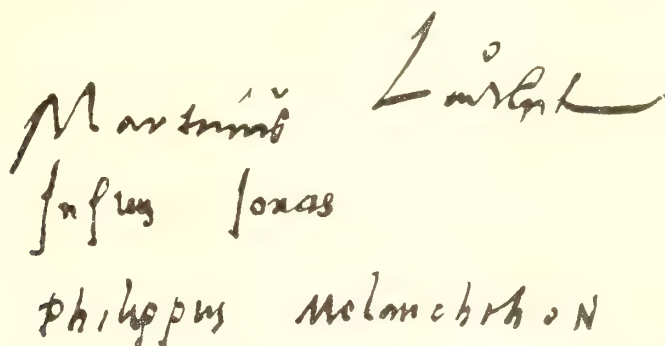 Martinus Luther
Justus Jonas
philippus MelanchthoN